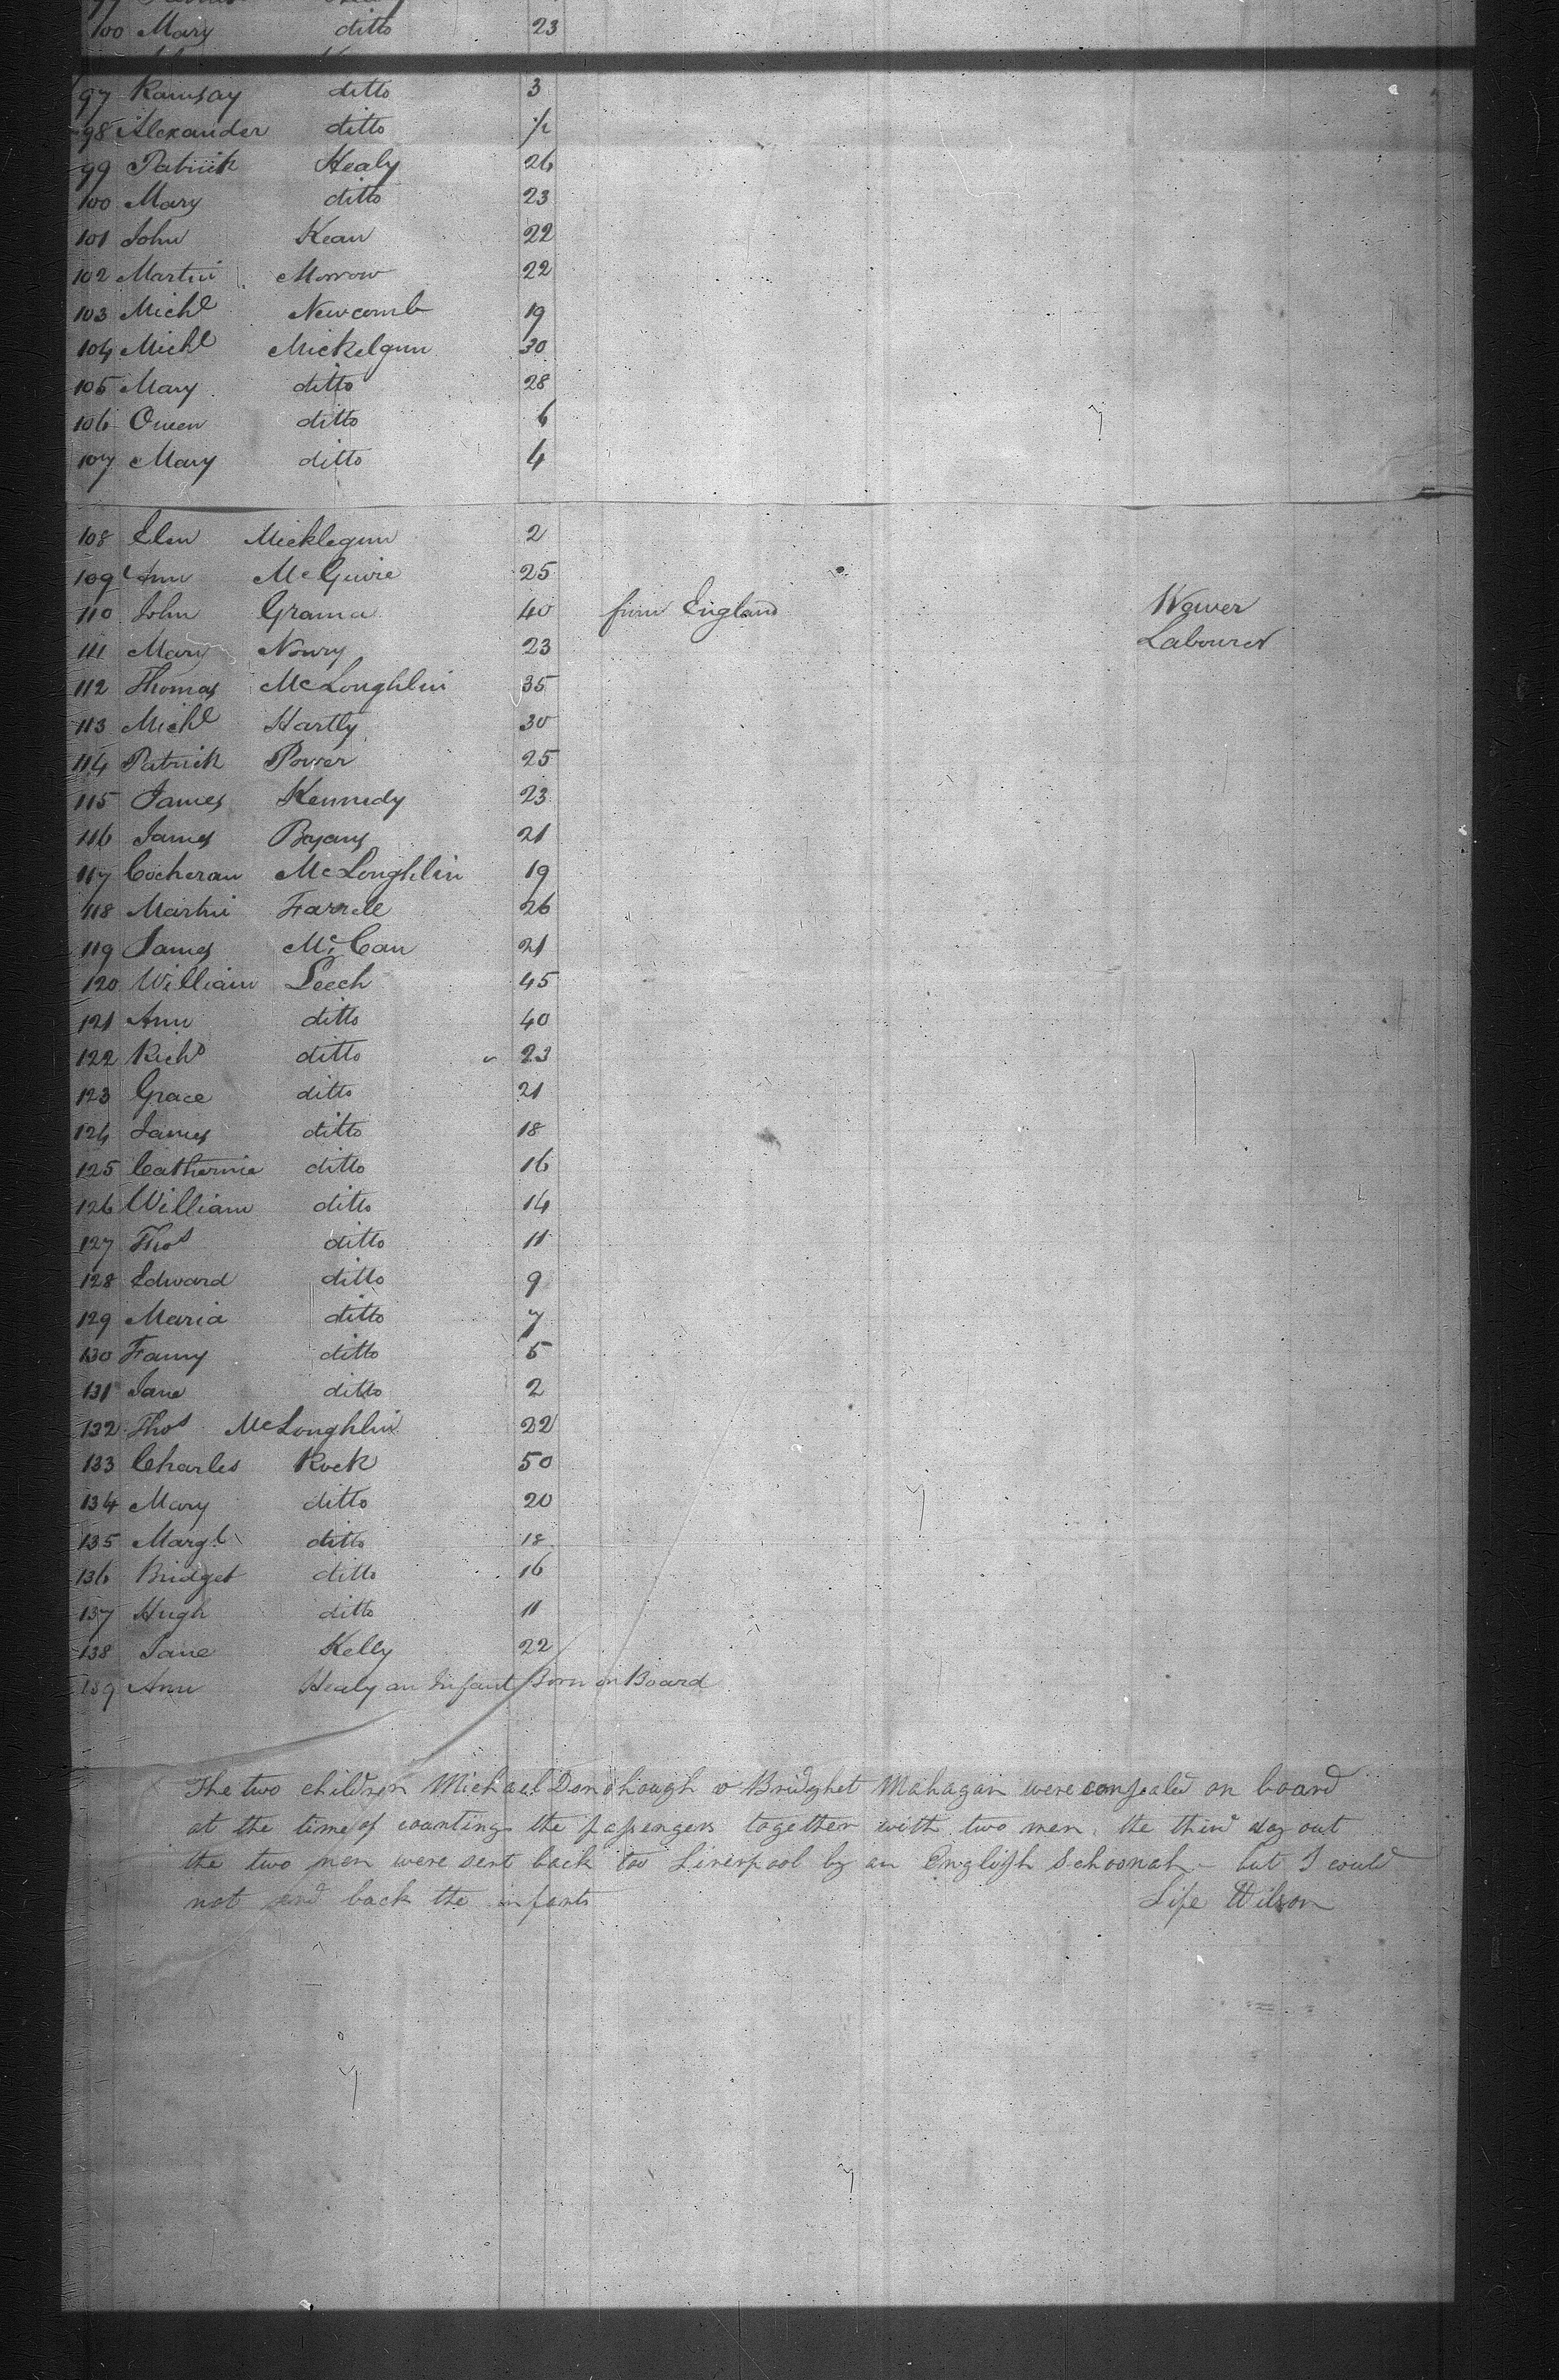 100 Mary ditto 23
97 Ramsay ditto 3
98 Alexander ditto ½
99 Patrick Healy 26
100 Mary ditto 23
101 John Kean 22
102 Martin Morrow 22
103 Michl Newcomb 19
104 Michl Mickelgun 30
105 Mary ditto 28
106 Owen ditto 6
107 Mary ditto 4
108 Elen Micklegun 2
109 Ann McGuire 25
110 John Grama 40 from England Wever
111 Mary Nowry 23 Labourer
112 Thomas McLoughlin 35
113 Michl Hartly 30
114 Patrick Power 25
115 James Kennedy 23
116 James Bryans 21
117 Cocheran McLoughlin 19
118 Martin Farrell 26
119 James McCan 21
120 William Leech 45
121 Ann ditto 40
122 Richd ditto 23
123 Grace ditto 21
124 James ditto 18
125 Catherine ditto 16
126 William ditto 14
127 Thos ditto 11
128 Edward ditto 9
129 Maria ditto 7
130 Fanny ditto 5
131 Jane ditto 2
132 Thos McLoughlin 22
133 Charles Rock 50
134 Mary ditto 20
135 Margt ditto 18
136 Bridget ditto 16
137 Hugh ditto 11
138 Jane Kelly 22
139 Ann Healy an Infant Born on Board
The two children Michael Donohough & Bridghet Mahagan were consealed on board
at the time of counting the passengers together with two men. the third day out
the two men were sent back too Liverpool by an English Schoonah - but I could
not send back the infants Wilson